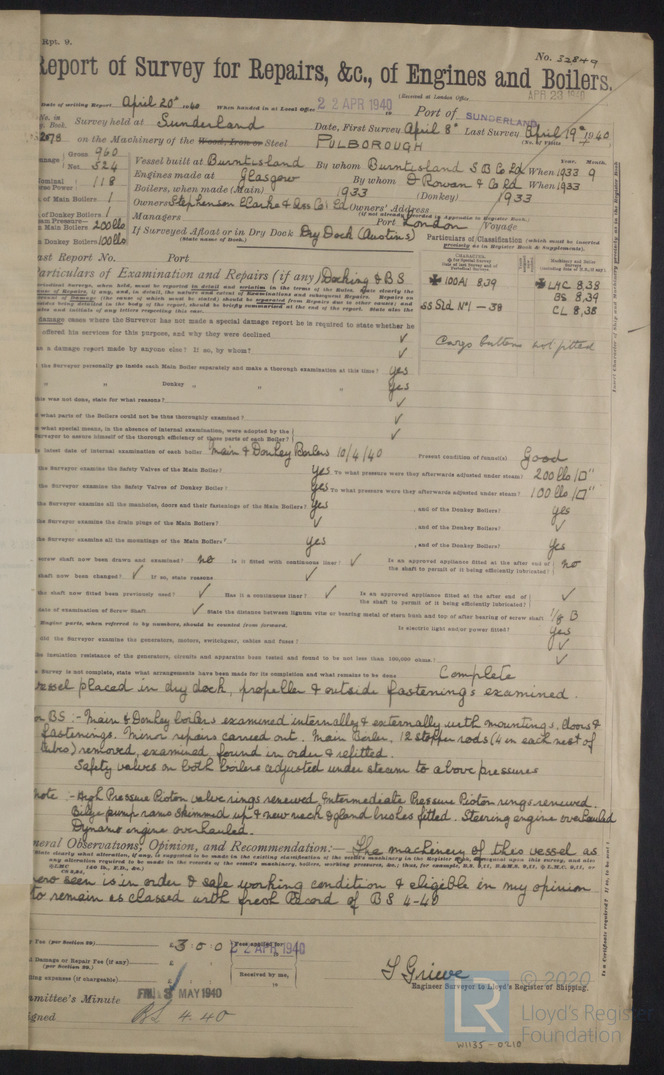 Rpt. 9.
No. 52849
Report of Survey for Repairs, &c., of Engines and Boilers.
(Received at London Office APR 23 1940
Date of writing Report April 20th 1940 When handed in at Local Office 22 APR 1940 Port of SUNDERLAND
No. in Survey held at Sunderland Date, First Survey April 8th Last Survey April 19th 1940
g. Book. (No. of Visits 7
on the Machinery of the Wood, Iron or Steel PULBOROUGH
Gross 960
Net 524
Vessel built at Burntisland By whom Burntisland S B Co Ld When 1933 9
Year. Month.
118 Engines made at Glasgow By whom D Rowan & Co Ld When 1933
of Main Boilers 1 Boilers, when made (Main) 1933 (Donkey) 1933
of Donkey Boilers 1 Owners Stephenson Clarke & Ass Co. Ld Owners' Address
(if not already recorded in Appendix to Register Book.)
Managers Port London Voyage
Main Boilers 200 lbs If Surveyed Afloat or in Dry Dock Dry Dock (Austins)
(State name of Dock.)
Donkey Boilers 100 lbs
Particulars of Classification (which must be inserted precisely as in Register Book & Supplements).
ast Report No. Port
Particulars of Examination and Repairs (if any) Docking & BS
100A1 8.39
LMC 8.38
BS 8,39
CL 8,38
SS Sld No1 — 38
Cargo battens not fitted
damage cases where the Surveyor has not made a special damage report he is required to state whether he
offered his services for this purpose, and why they were declined ✓
as a damage report made by anyone else? If so, by whom? ✓
the Surveyor personally go inside each Main Boiler separately and make a thorough examination at this time? Yes
" " Donkey " " " Yes
this was not done, state for what reasons? ✓
what parts of the Boilers could not be thoroughly examined? ✓
what special means, in the absence of internal examination, were adopted by the
Surveyor to assure himself of the thorough efficiency of those parts of each Boiler? ✓
latest date of internal examination of each boiler Main & Donkey Boilers 10/4/40 Present condition of funnel(s) Good
the Surveyor examine the Safety Valves of the Main Boiler? Yes To what pressure were they afterwards adjusted under steam? 200 lbs/□"
the Surveyor examine the Safety Valves of Donkey Boiler? Yes To what pressure were they afterwards adjusted under steam? 100 lbs/□"
the Surveyor examine all the manholes, doors and their fastenings of the Main Boilers? Yes , and of the Donkey Boilers? Yes
the Surveyor examine the drain plugs of the Main Boilers? ✓ , and of the Donkey Boilers? ✓
the Surveyor examine all the mountings of the Main Boilers? Yes , and of the Donkey Boilers? Yes
screw shaft now been drawn and examined? No Is it fitted with continuous liner? ✓ Is an approved appliance fitted at the after end of
the shaft to permit of it being efficiently lubricated? No
shaft now been changed? ✓ If so, state reasons ✓
the shaft now fitted been previously used? ✓ Has it a continuous liner? ✓ Is an approved appliance fitted at the after end of
the shaft to permit of it being efficiently lubricated? ✓
date of examination of Screw Shaft ✓ State the distance between lignum vitæ or bearing metal of stern bush and top of after bearing of screw shaft 1/8 B
Engine parts, when referred to by numbers, should be counted from forward. Is electric light and/or power fitted? Yes
did the Surveyor examine the generators, motors, switchgear, cables and fuses? ✓
the insulation resistance of the generators, circuits and apparatus been tested and found to be not less than 100,000 ohms? ✓
Survey is not complete, state what arrangements have been made for its completion and what remains to be done Complete
Vessel placed in dry dock, propeller & outside fastenings examined.
or BS :- Main & Donkey boilers examined internally & externally with mountings, doors &
fastenings. Minor repairs carried out. Main Boiler. 12 stopper rods (4 in each nest of
tubes) removed, examined found in order & refitted.
Safety valves on both boilers adjusted under steam to above pressures
Note :- High Pressure Piston valve rings renewed. Intermediate Pressure Piston rings renewed.
Bilge pump rams skimmed up & new neck & gland bushes fitted. Steering engine overhauled
Dynamo engine overhauled.
neral Observations, Opinion, and Recommendation:— The machinery of this vessel as
here seen is in order & safe working condition & eligible in my opinion
to remain as classed with fresh Record of BS 4-40
Fee (per Section 29) £3 : 0 : 0 Fees applied for 22 APR 1940
Damage or Repair Fee (if any)
(per Section 29.)
ling expenses (if chargeable) Received by me,
L Grieve
Engineer Surveyor to Lloyd's Register of Shipping.
mmittee's Minute FRI. 3 MAY 1940
signed BS 4.40
© 2020
LR
Lloyd's Register
Foundation
W1135-0210